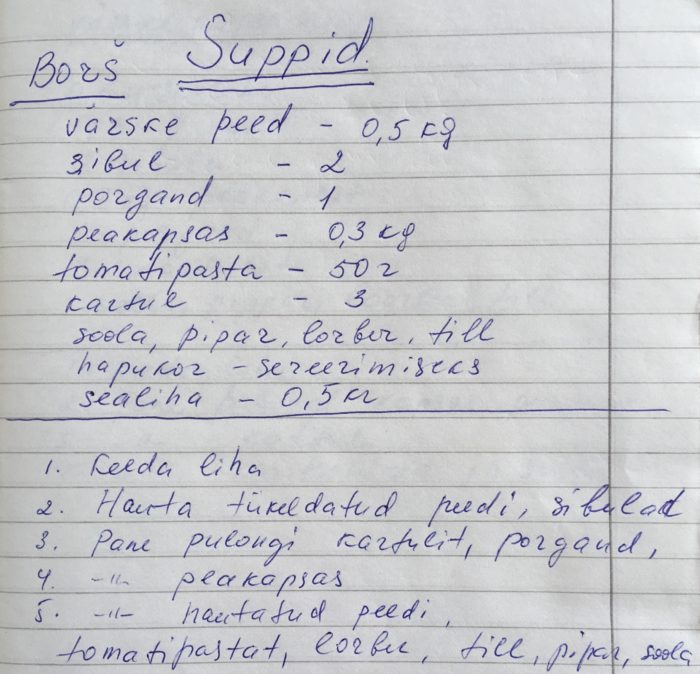 Suppid.
Borš
värske peed - 0,5 kg
sibul - 2
porgand - 1
peakapsas - 0,3 kg
tomatipasta - 50 г
kartul - 3
soola, pipar, lorber, till
hapukor - serveerimiseks
sealiha - 0,5 кг
1. Keeda liha
2. Hauta tükeldatud peedi, sibulad
3. Pane pulongi kartulit, porgand,
4. -"- peakapsas
5. -"- hautatud peedi,
tomatipastat, lorber, till, pipar, soola